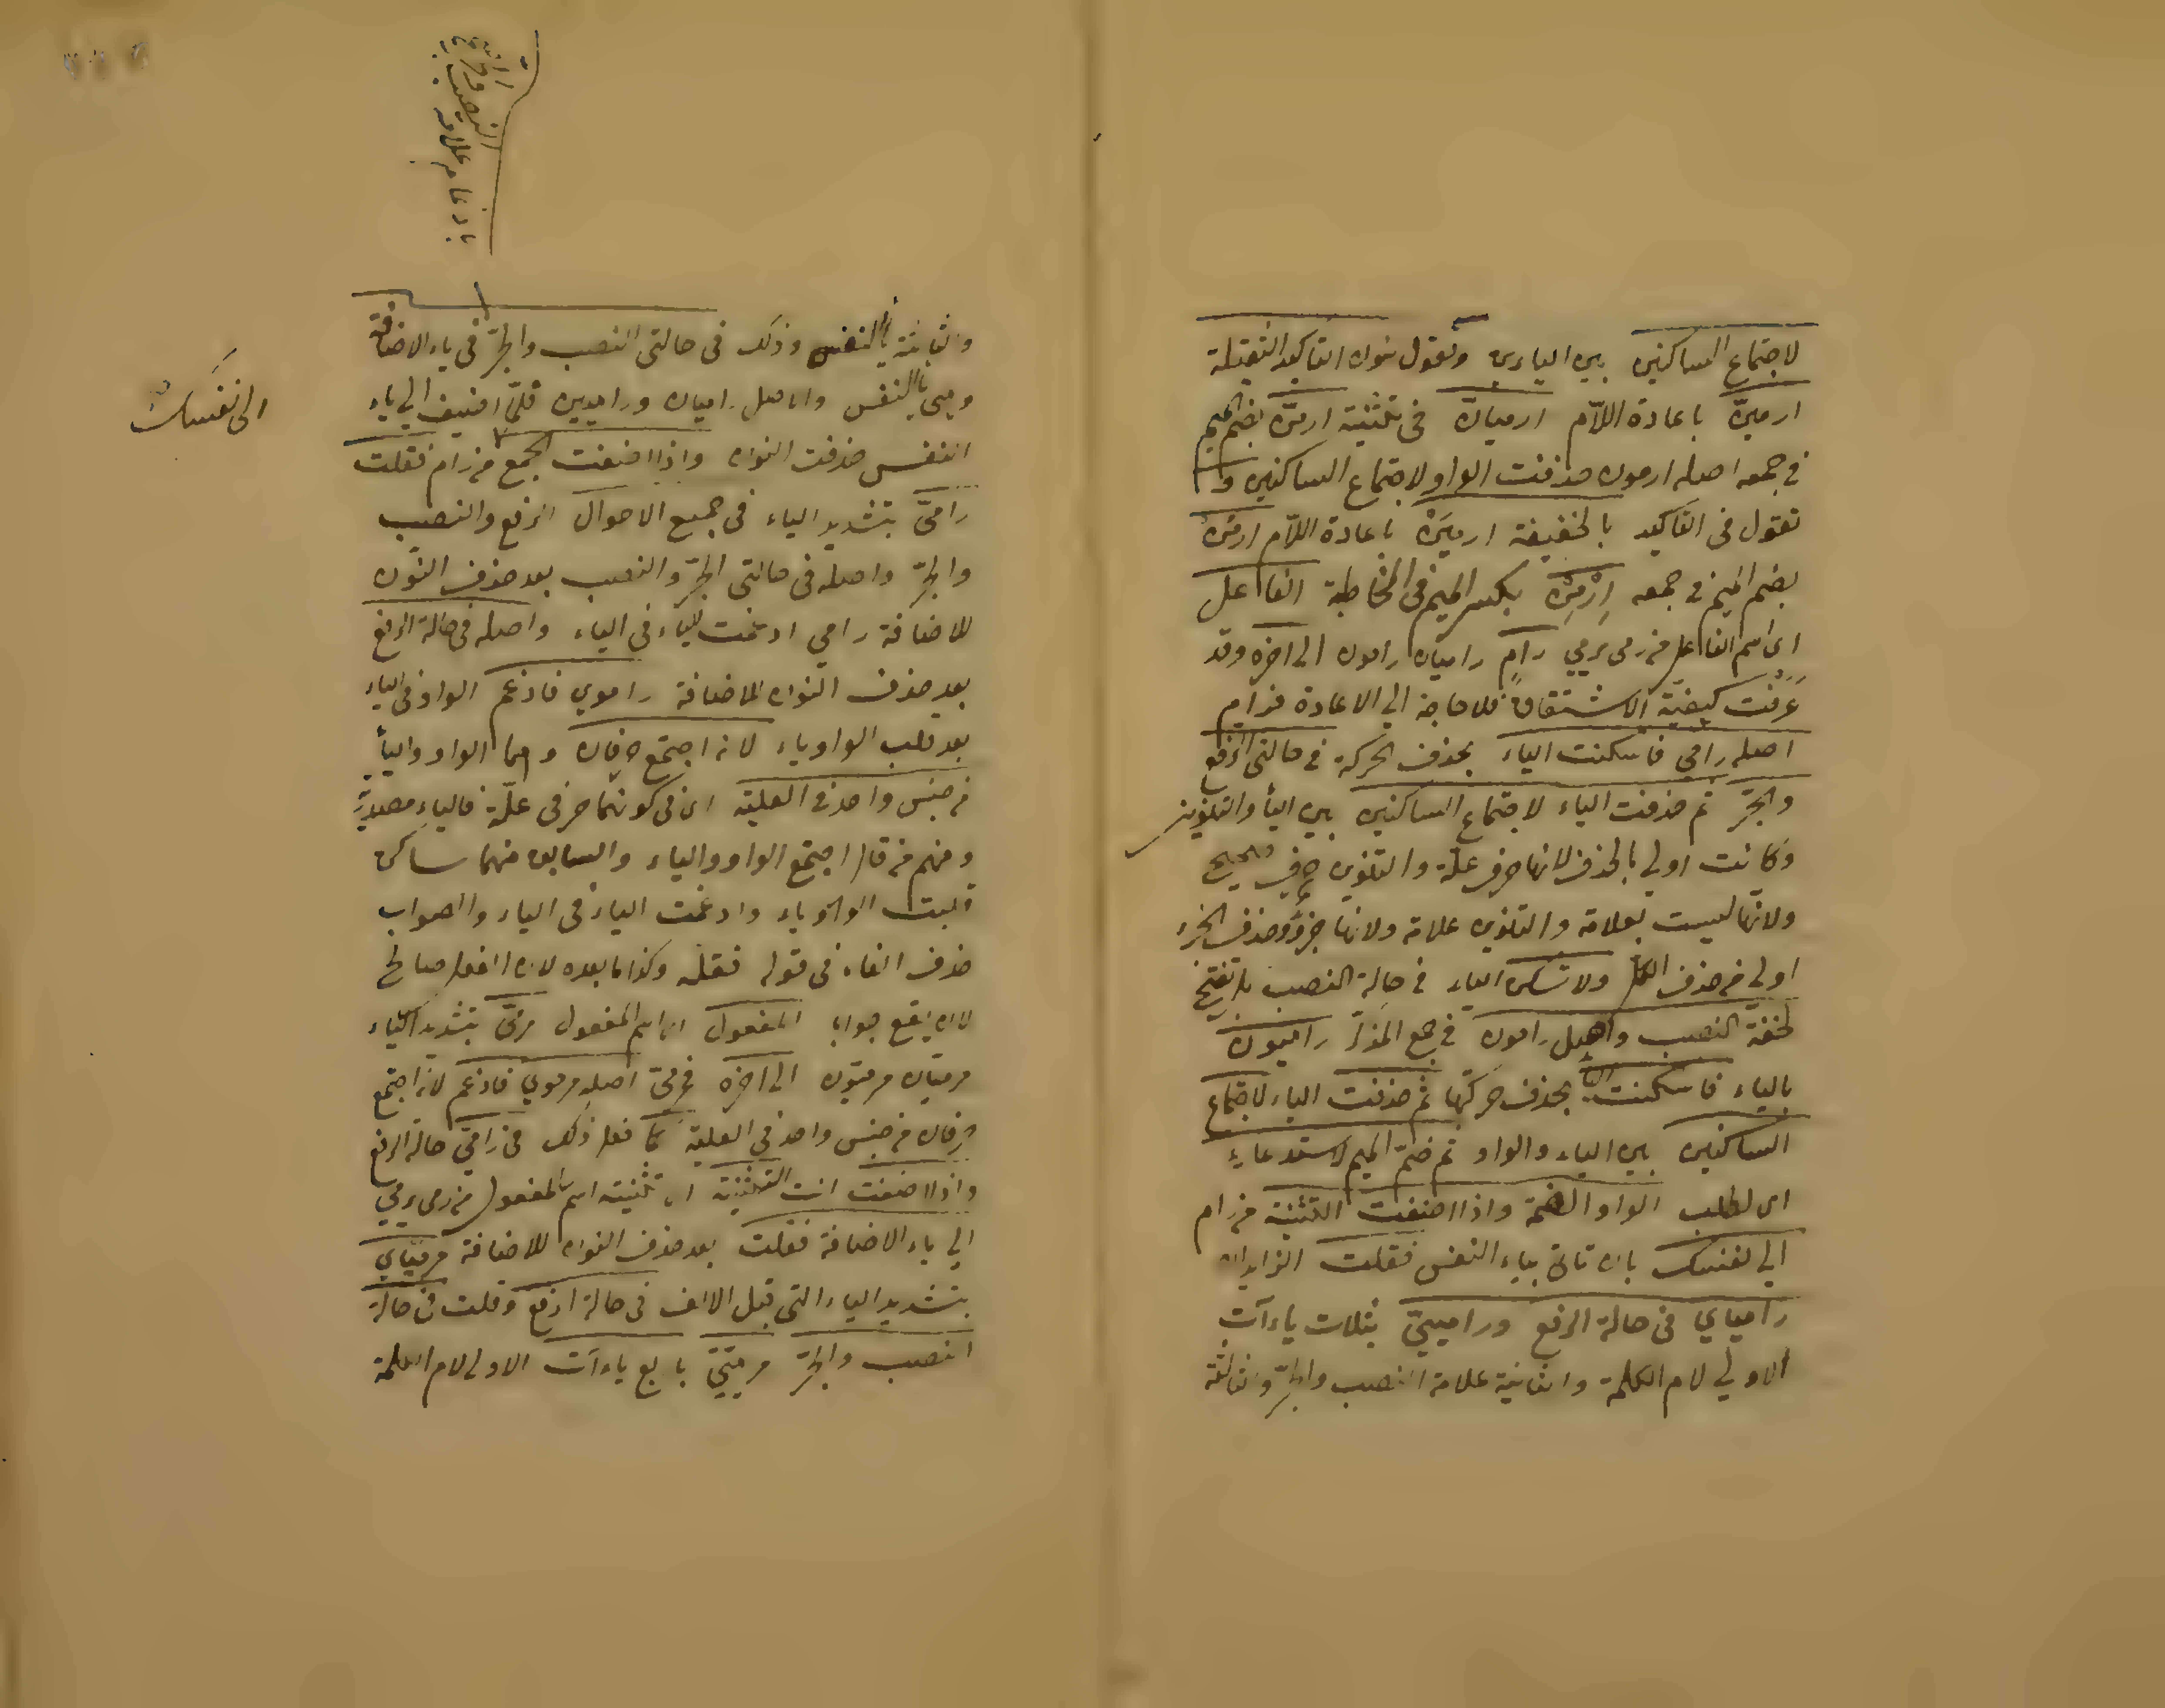 لاجتماع الساكنين بين اليائين وتقول بنون التاكيد الثقيلة
ارمينّ باعادة اللّام ارميانّ فى تثنيته ارمنّ بضم الميم
في جمعه اصله ارمون حذفت الواو لاجتماع الساكنين و
تقول فى التاكيد بالخفيفة ارميَنْ باعادة اللّام ارمنْ
بضم الميم في جمعه اِرْمِنْ بكسر الميم فى المخاطبة الفاعل
اى اسم الفاعل من رمى يرمي رامٍ راميان رامون الى اخره وقد
عَرَفْتَ كيفيّة الاشتقاق فلا حاجة الي الاعادة فرام
اصله رامي فاسكنت الياء بحذف الحركة في حالتى الرفع
والجرّ ثم حذفت الياء لاجتماع الساكنين بين اليأ والتنوين
وكانت اولي بالحذف لانها حرف علّة والتنوين حرف صحيح
ولانّها ليست بعلامة والتنوين علامة ولانها جزؤ وحذف الجزء
اولى من حذف الكل ولا تسكن الياء في حالة النصب بل تفتح
لخفّة النصب واصل رامون في جمع المذكر راميون
بالياء فاسكنت اليأ بحذف حركتها ثم حذفت الياء لاجتماع
الساكنين بين الياء والواو ثم ضمّ الميم لاستدعاء
اى لطلب الواو الضمة واذا اضفت التثنية من رام
الي نفسك بان تاتى بياء النفس فقلت الزايدان
رامياي فى حالة الرفع وراميىّ بثلاث ياءآت
الاولي لام الكلمة والثانية علامة النصب والجرّ والثالثة
والثالثة ياالنفس وذلك فى حالتى النصب والجرّ فى ياء الاضافة
وهى ياالنفس والاصل راميان وراميين فلمّا اضيف الي ياء
النفس حذفت النون واذا اضفت الجمع من رام فقلت
رامىّ بتشديد الياء فى جميع الاحوال الرفع والنصب
والجرّ واصله فى حالتى الجرّ والنصب بعد حذف النّون
للاضافة رامي ادغمت الياء فى الياء واصله فى حالة الرفع
بعد حذف النون للاضافة راموي فادغم الواو فى الياء
بعد قلب الواو ياء لانه اجتمع حرفان وهما الواو واليأ
من جنس واحد فى العلية اى فى كونهما حرفى علّة فالياء مصدريّة
ومنهم من قال اجتمع الواو والياء والسابق منهما ساكن
قلبت الواو ياء وادغمت الياء فى الياء والصواب
حذف الفاء فى قوله فقلت وكذا ما بعده لان الفعل صالح
لان يقع جوابا المفعول اى اسم المفعول مرمىّ بتشديد الياء
مرميّان مرميّون الى اخره فمرمىّ اصله مرموي فادغم لانه اجتمع
حرفان من جنس واحد فى العلية كما فعل ذلك فى رامىّ حالة الرفع
واذا اضفت انت التثنية اى تثنية اسم المفعول من رمى يرمي
الي ياء الاضافة فقلت بعد حذف النون للاضافة مرميّاي
بتشديد الياء التى قبل الالف فى حالة الرفع وقلت فى حالة
النصب والجرّ مرميّىّ باربع ياءآت الاولى لام الكلمة
الى نفسك